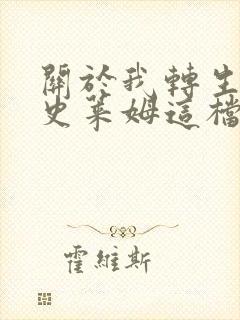 關於我轉生
史萊姆這檔
霍維斯